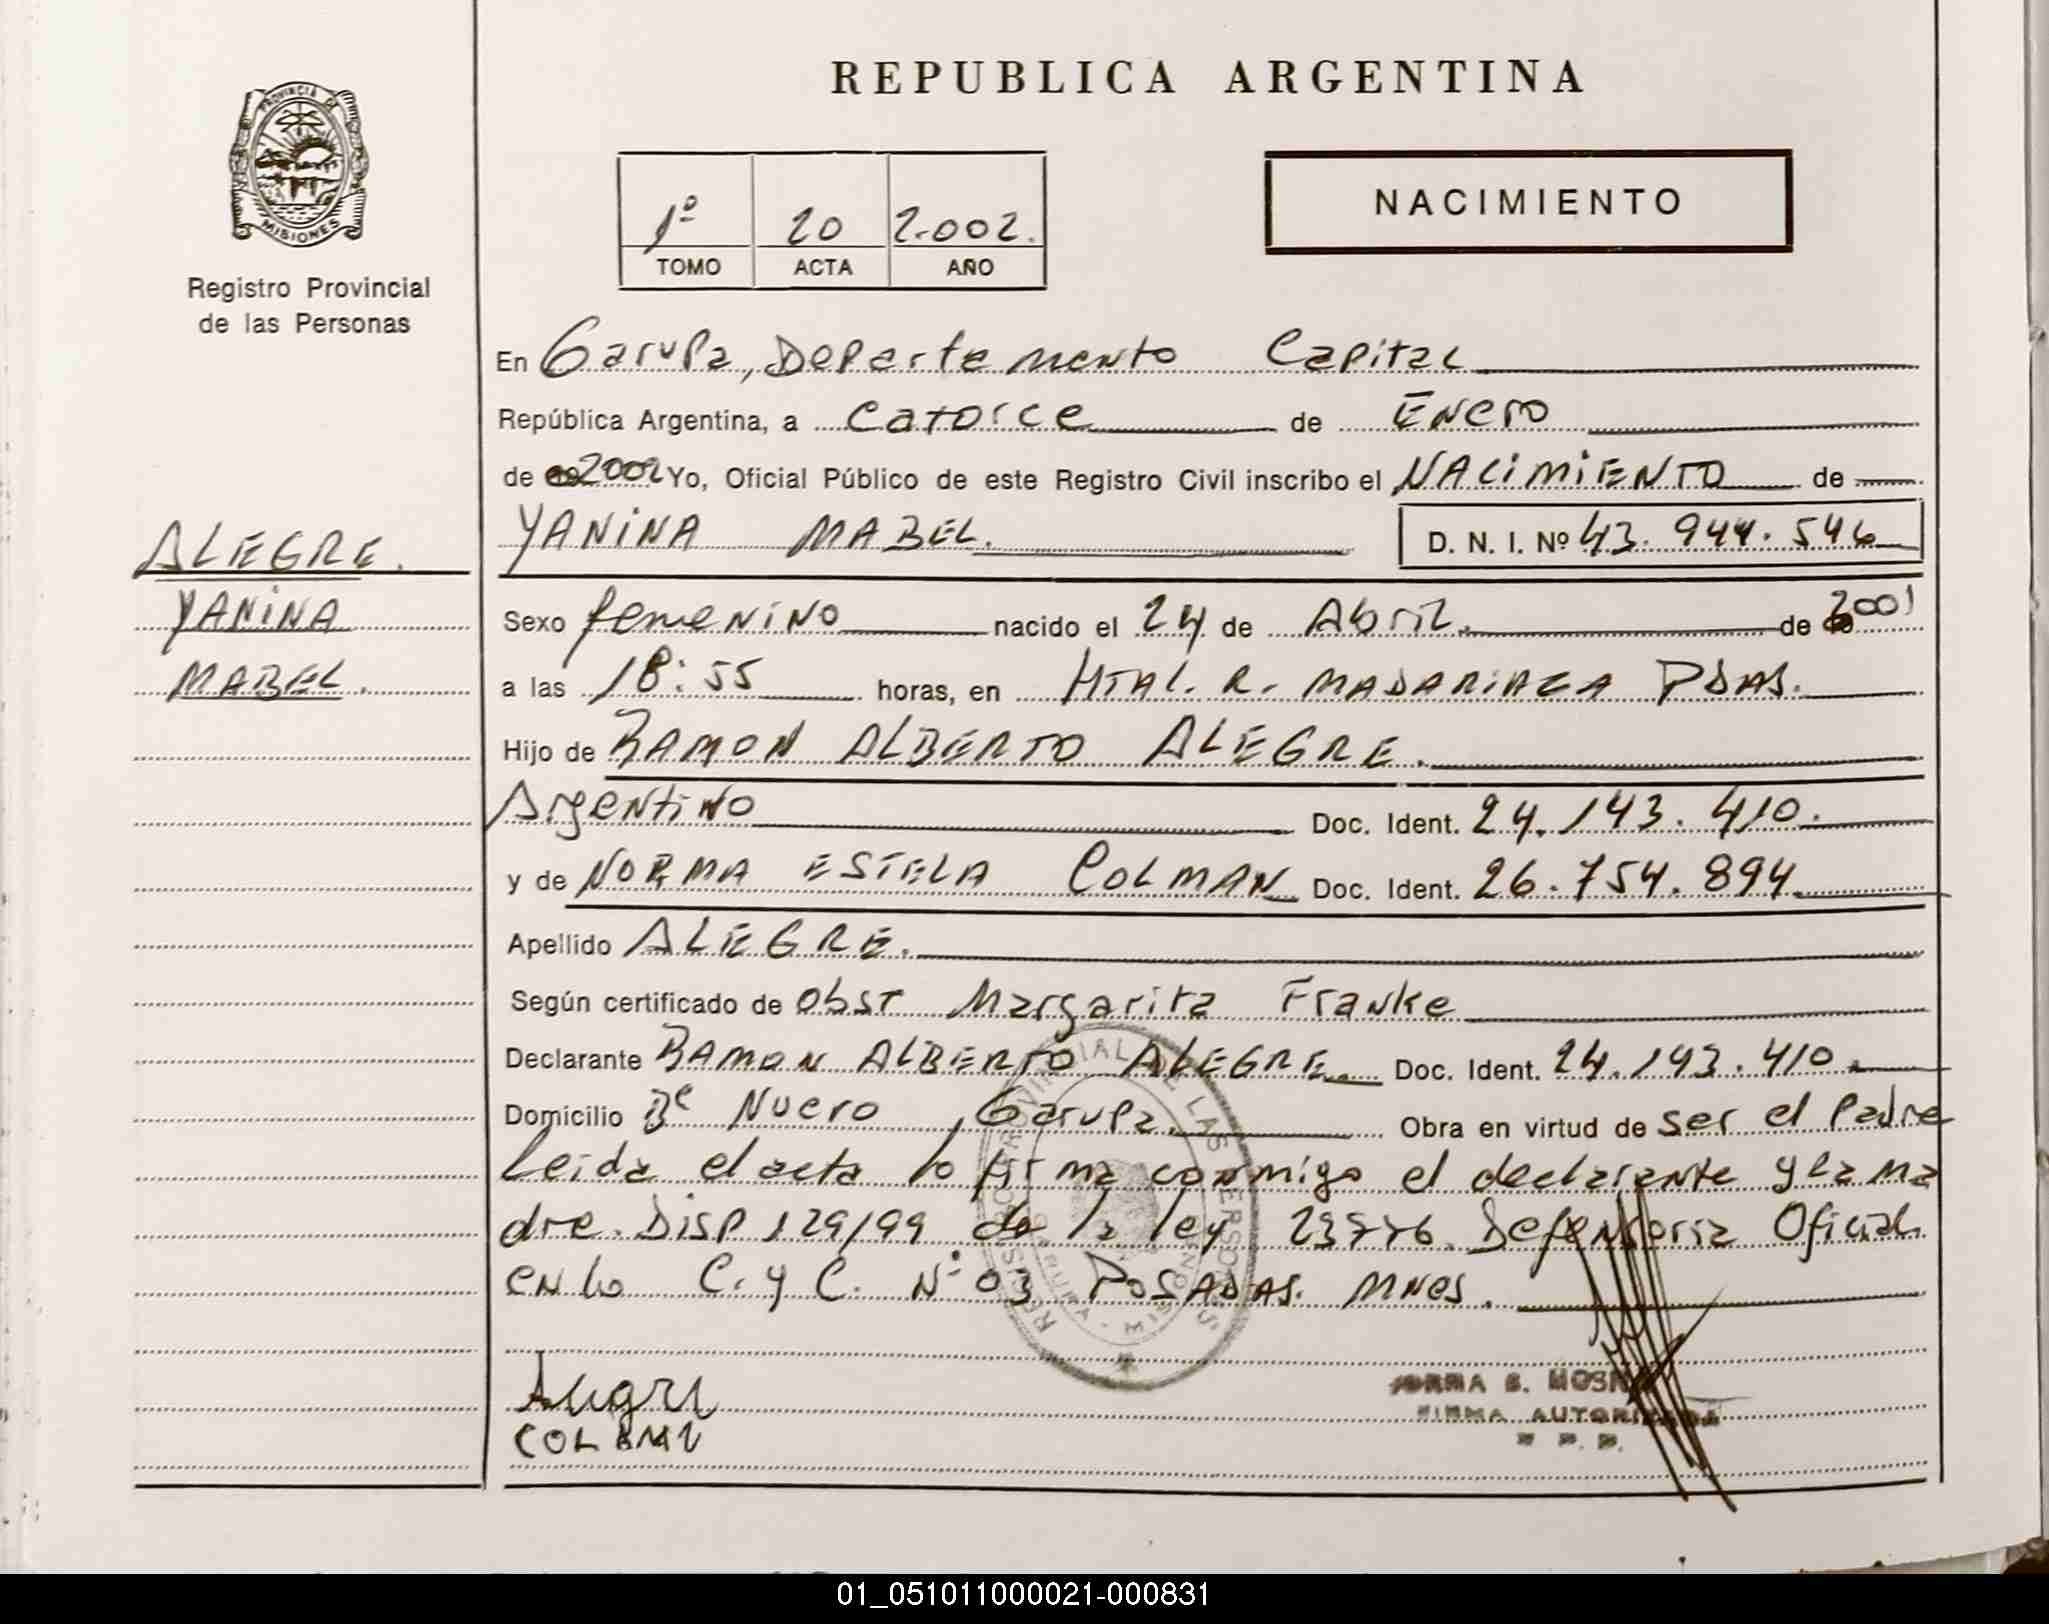 REPUBLICA ARGENTINA
PROVINCIA DE
MISIONES
Registro Provincial
de las Personas
1º 20 2.002.
TOMO ACTA AÑO
NACIMIENTO
En Garupa, Departamento Capital
República Argentina, a catorce de Enero
de 2002 Yo, Oficial Público de este Registro Civil inscribo el NACIMIENTO de
YANINA MABEL. D. N. I. Nº 43.944.546
ALEGRE.
YANINA
MABEL.
Sexo femenino nacido el 24 de Abril. de 2001
a las 18:55 horas, en HTAL. R. MADARIAGA PDAS.
Hijo de RAMON ALBERTO ALEGRE.
Argentino Doc. Ident. 24.143.410.
y de NORMA ESTELA COLMAN Doc. Ident. 26.754.894
Apellido ALEGRE.
Según certificado de obst Margarita Franke
Declarante RAMON ALBERTO ALEGRE. Doc. Ident. 24.143.410.
Domicilio Bº Nuevo, Garupa. Obra en virtud de ser el Padre
Leida el acta lo firma conmigo el declarante y la ma
dre. Disp 129/99 de la ley 23776. Defensoria Oficial
en lo C. y C. Nº 03 POSADAS. MNES.
REGISTRO PROVINCIAL DE LAS PERSONAS
GARUPA - MISIONES
Alegre
COLMAN
FIRMA AUTORIZADA
01_051011000021-000831